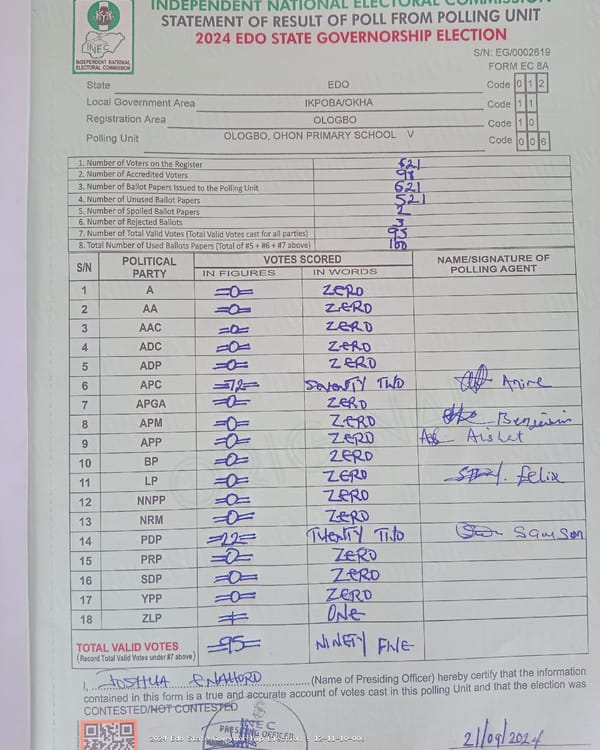 INDEPENDENT NATIONAL ELECTORAL COMMISSION
STATEMENT OF RESULT OF POLL FROM POLLING UNIT
2024 EDO STATE GOVERNORSHIP ELECTION
INEC
INDEPENDENT NATIONAL
ELECTORAL COMMISSION
S/N: EG/0002619
FORM EC 8A
State EDO Code 0 1 2
Local Government Area IKPOBA/OKHA Code 1 1
Registration Area OLOGBO Code 1 0
Polling Unit OLOGBO, OHON PRIMARY SCHOOL V Code 0 0 6
1. Number of Voters on the Register 621
2. Number of Accredited Voters 98
3. Number of Ballot Papers Issued to the Polling Unit 621
4. Number of Unused Ballot Papers 521
5. Number of Spoiled Ballot Papers 2
6. Number of Rejected Ballots 3
7. Number of Total Valid Votes (Total Valid Votes cast for all parties) 95
8. Total Number of Used Ballots Papers (Total of #5 + #6 + #7 above) 100
S/N POLITICAL PARTY VOTES SCORED NAME/SIGNATURE OF POLLING AGENT
IN FIGURES IN WORDS
1 A =0= ZERO
2 AA =0= ZERO
3 AAC =0= ZERO
4 ADC =0= ZERO
5 ADP =0= ZERO
6 APC =72= SEVENTY TWO Anire
7 APGA =0= ZERO
8 APM =0= ZERO Benjamin
9 APP =0= ZERO Aishet
10 BP =0= ZERO
11 LP =0= ZERO felix
12 NNPP =0= ZERO
13 NRM =0= ZERO
14 PDP =22= TWENTY TWO Samson
15 PRP =0= ZERO
16 SDP =0= ZERO
17 YPP =0= ZERO
18 ZLP =1= ONE
TOTAL VALID VOTES =95= NINETY FIVE
(Record Total Valid Votes under #7 above)
I, JOSHUA (Name of Presiding Officer) hereby certify that the information
contained in this form is a true and accurate account of votes cast in this polling Unit and that the election was
CONTESTED/NOT CONTESTED
INEC
PRESIDING OFFICER
21/09/2024